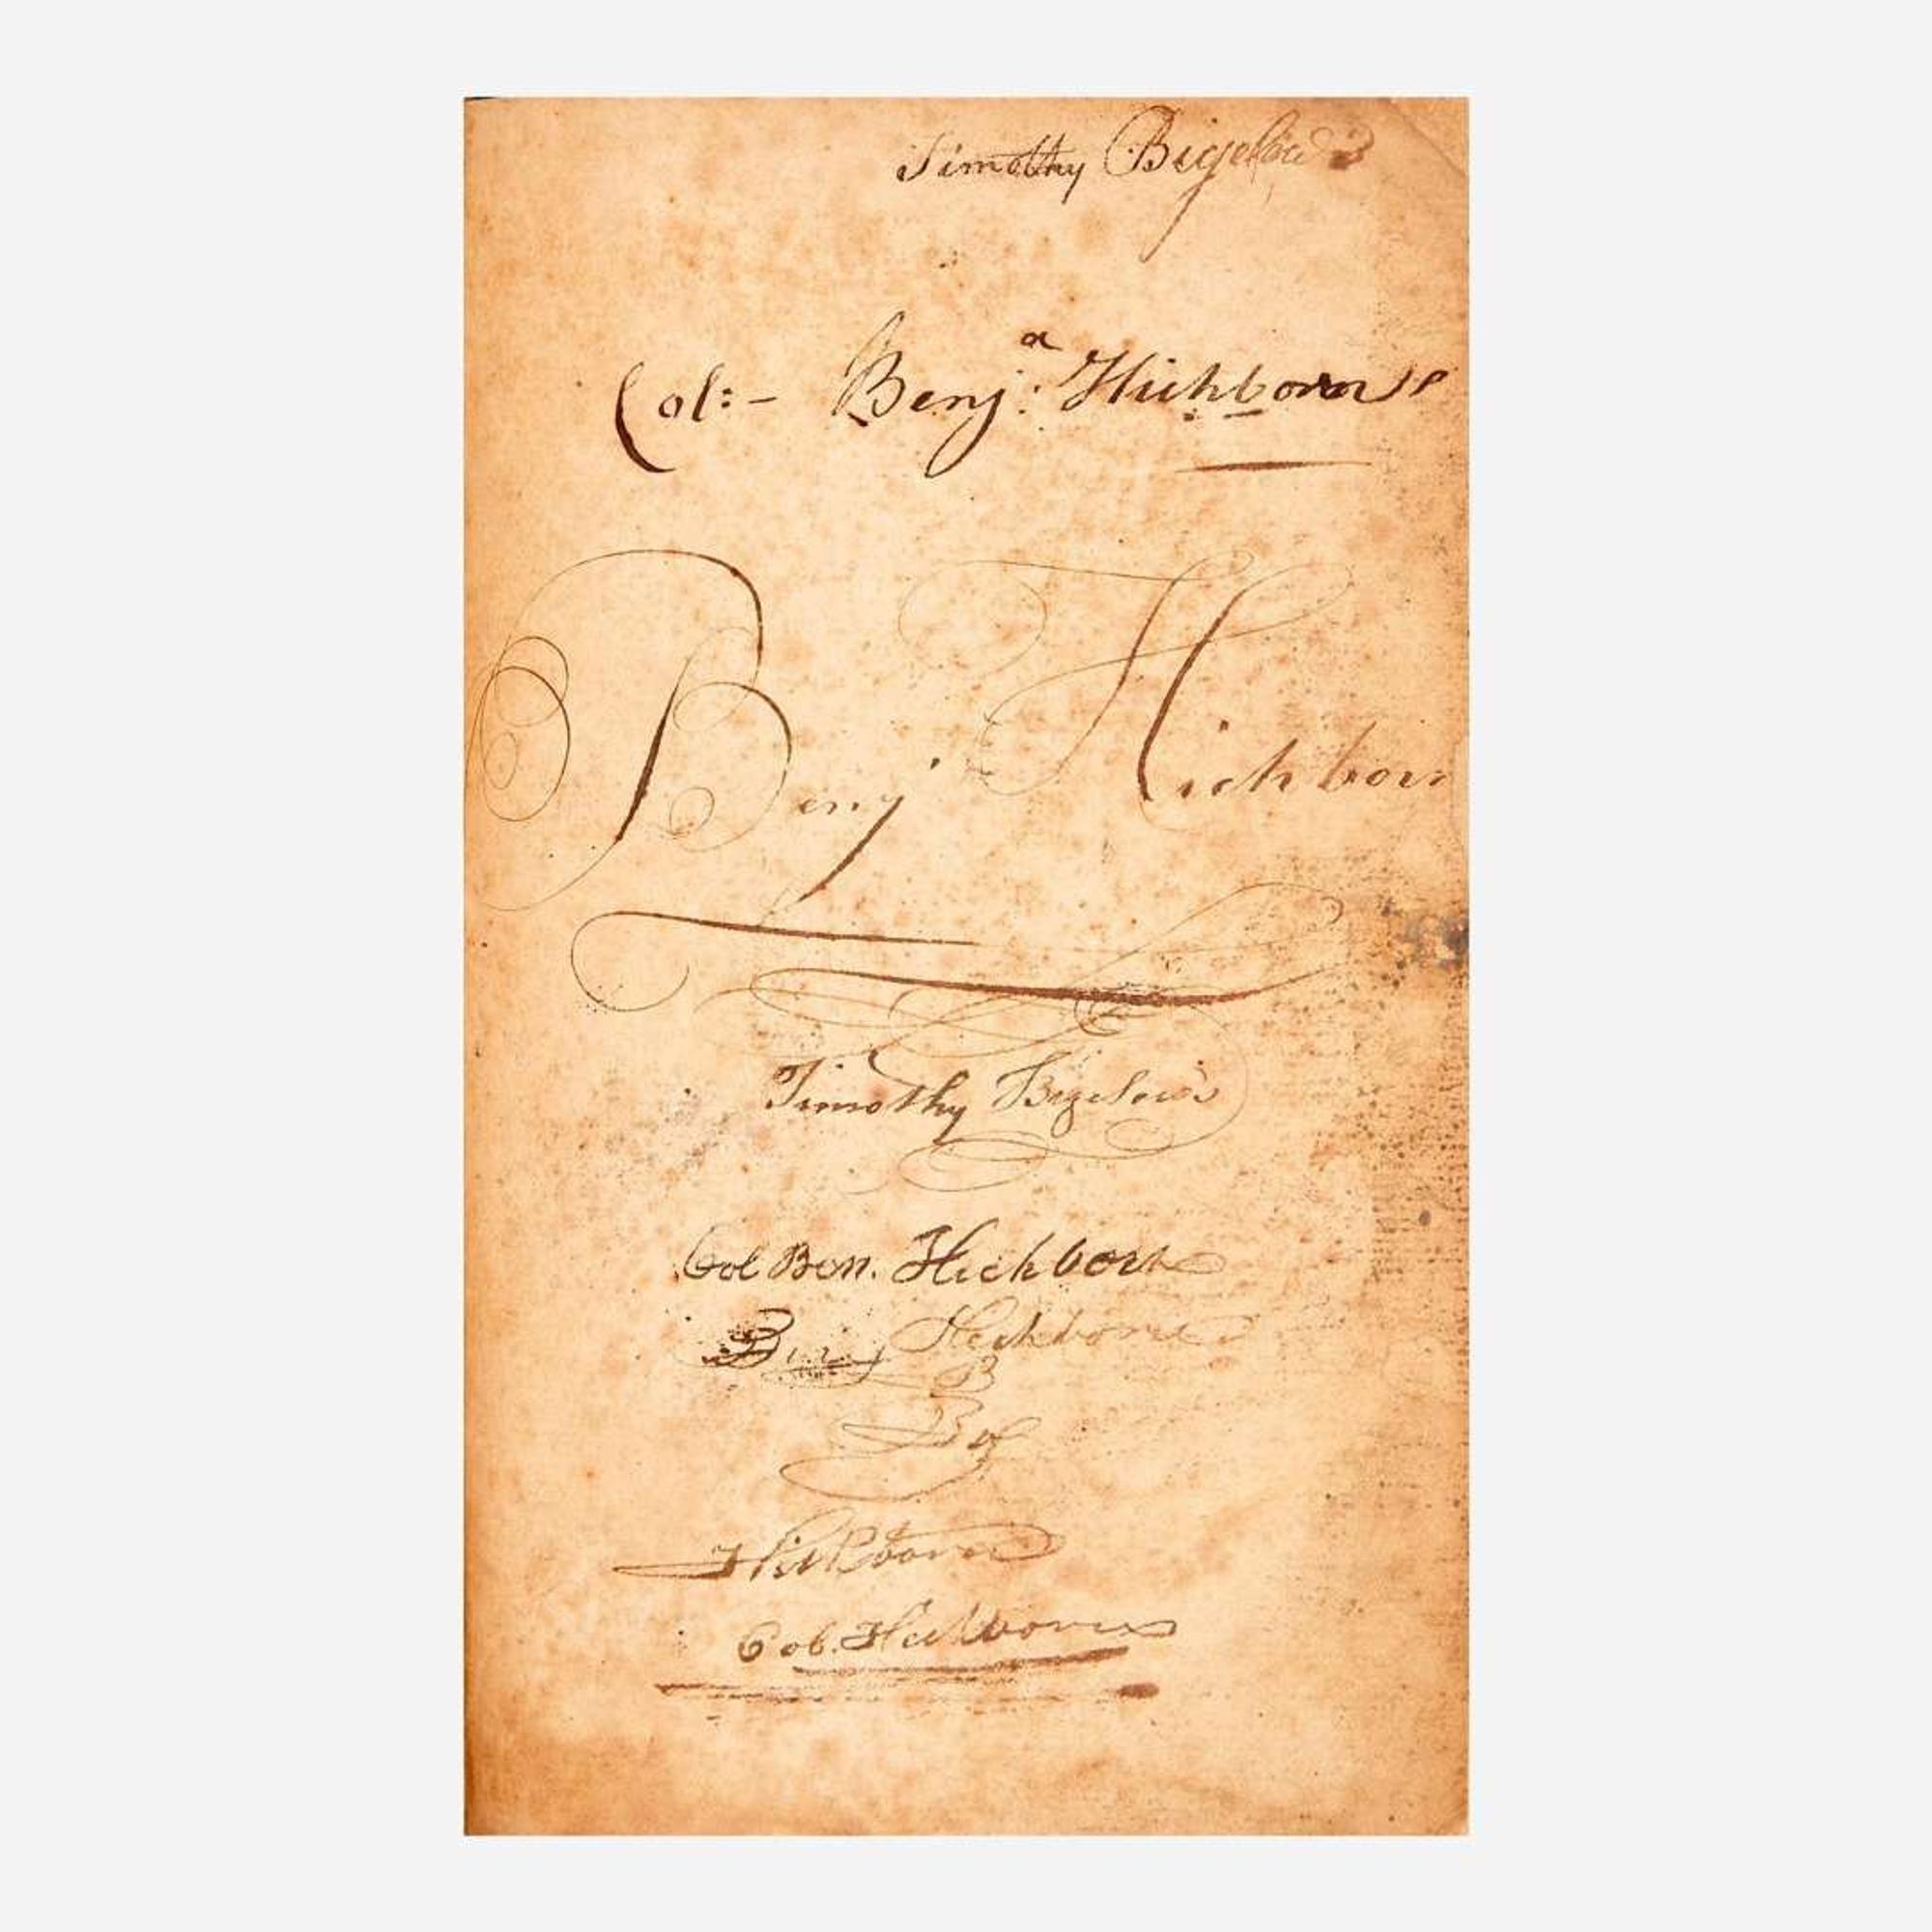 Timothy Bigelow's
Col:- Benjª. Hichborn's
Benj Hichborn
Timothy Bigelow's
Col Ben. Hichborn
Benj Hichborn
B
B
Hichborn
Col. Hichborn